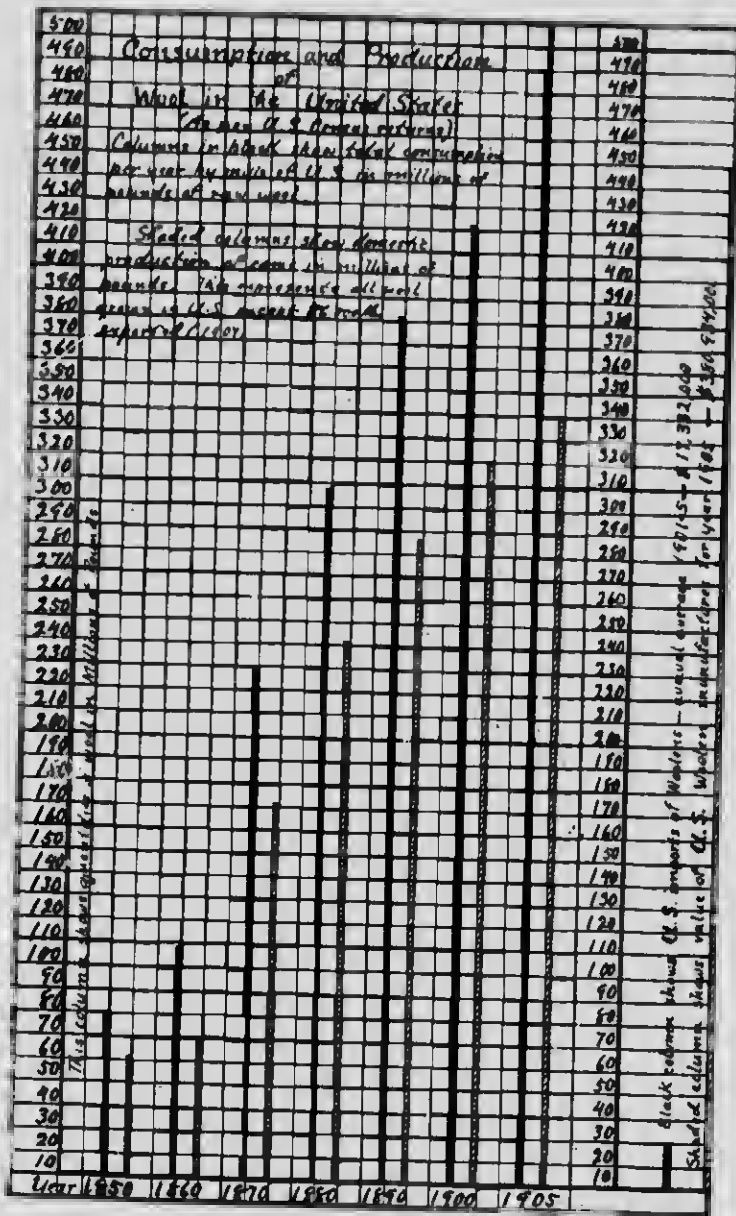 Consumption and Production
of
Wool in the United States
(As per U.S. Census returns)
Columns in black show total consumption
per year by mills of U.S. in millions of
pounds of raw wool.
Shaded columns show domestic
production of same in millions of
pounds. This represents all wool
grown in U.S. except
exported (1907)
500
490
480
470
460
450
440
430
420
410
400
390
380
370
360
350
340
330
320
310
300
290
280
270
260
250
240
230
220
210
200
190
180
170
160
150
140
130
120
110
100
90
80
70
60
50
40
30
20
10
This column shows quantities used in Millions of Pounds
500
490
480
470
460
450
440
430
420
410
400
390
380
370
360
350
340
330
320
310
300
290
280
270
260
250
240
230
220
210
200
190
180
170
160
150
140
130
120
110
100
90
80
70
60
50
40
30
20
10
Black column shows U.S. imports of Woolens - annual average 1901-5 - $17,332,000
Shaded column shows value of U.S. Woolen manufactures for year 1905 - $380,934,000
Year 1850 1860 1870 1880 1890 1900 1905